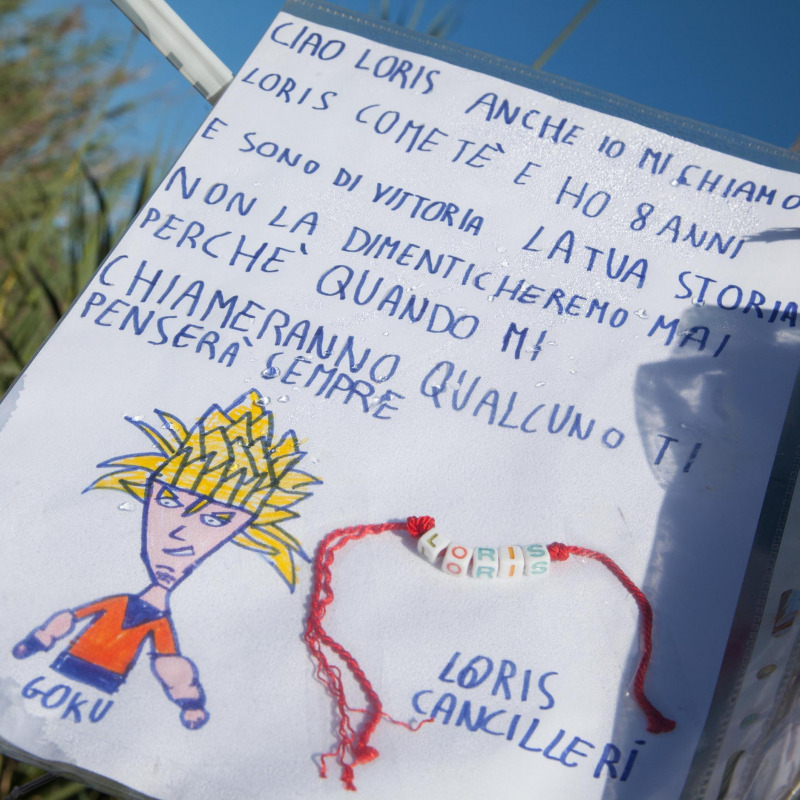 CIAO LORIS ANCHE IO MI CHIAMO
LORIS COME TE È E HO 8 ANNI
E SONO DI VITTORIA LA TUA STORIA
NON LA DIMENTICHEREMO MAI
PERCHE` QUANDO MI
CHIAMERANNO QUALCUNO TI
PENSERA` SEMPRE
LORIS
GOKU
LORIS
CANCILLERI